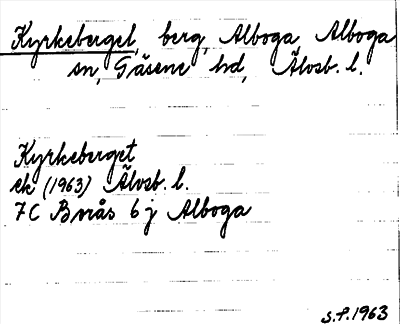 Kyrkeberget, berg, Alboga, Alboga
sn, Gäsene hd, Älvsb. l.
Kyrkeberget
ek (1963) Älvsb. l.
7C Borås 6 j Alboga
S.F. 1963